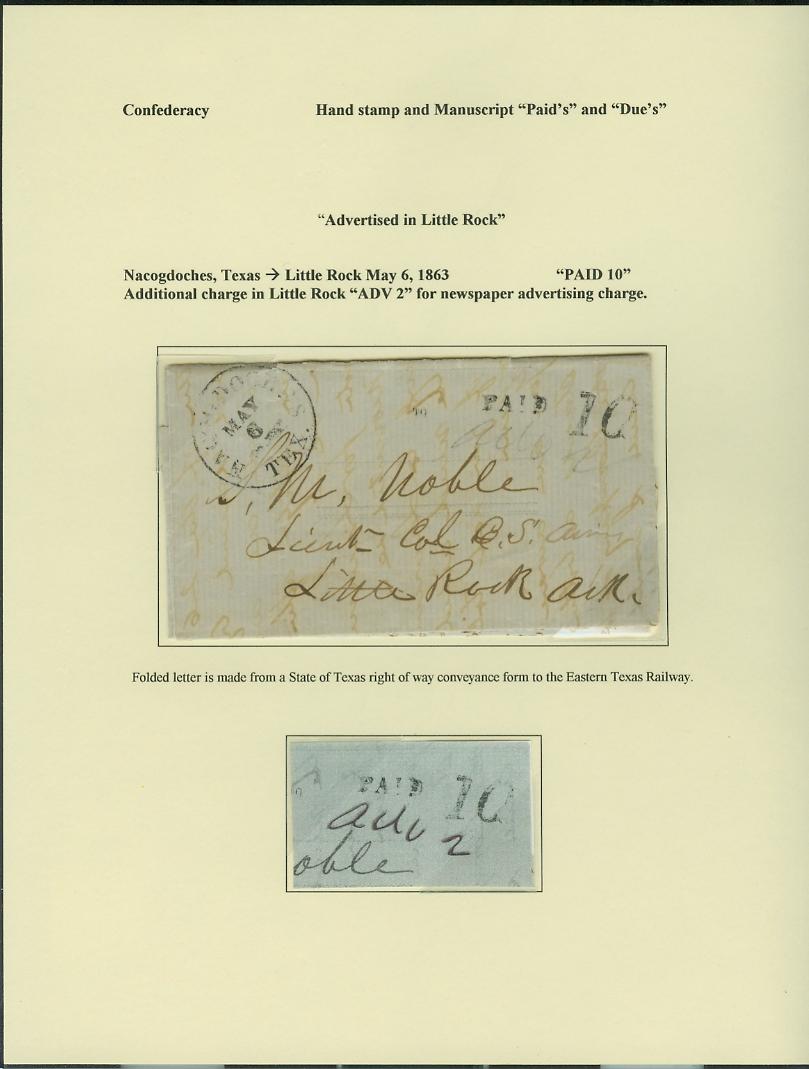 Confederacy Hand stamp and Manuscript “Paid's” and “Due's”
“Advertised in Little Rock”
Nacogdoches, Texas → Little Rock May 6, 1863 “PAID 10”
Additional charge in Little Rock “ADV 2” for newspaper advertising charge.
NACOGDOCHES
MAY
6
TEX.
PAID 10
adv 2
S, M, Noble
Lieut Col C.S. Army
Little Rock Ark.
Folded letter is made from a State of Texas right of way conveyance form to the Eastern Texas Railway.
PAID 10
adv 2
oble